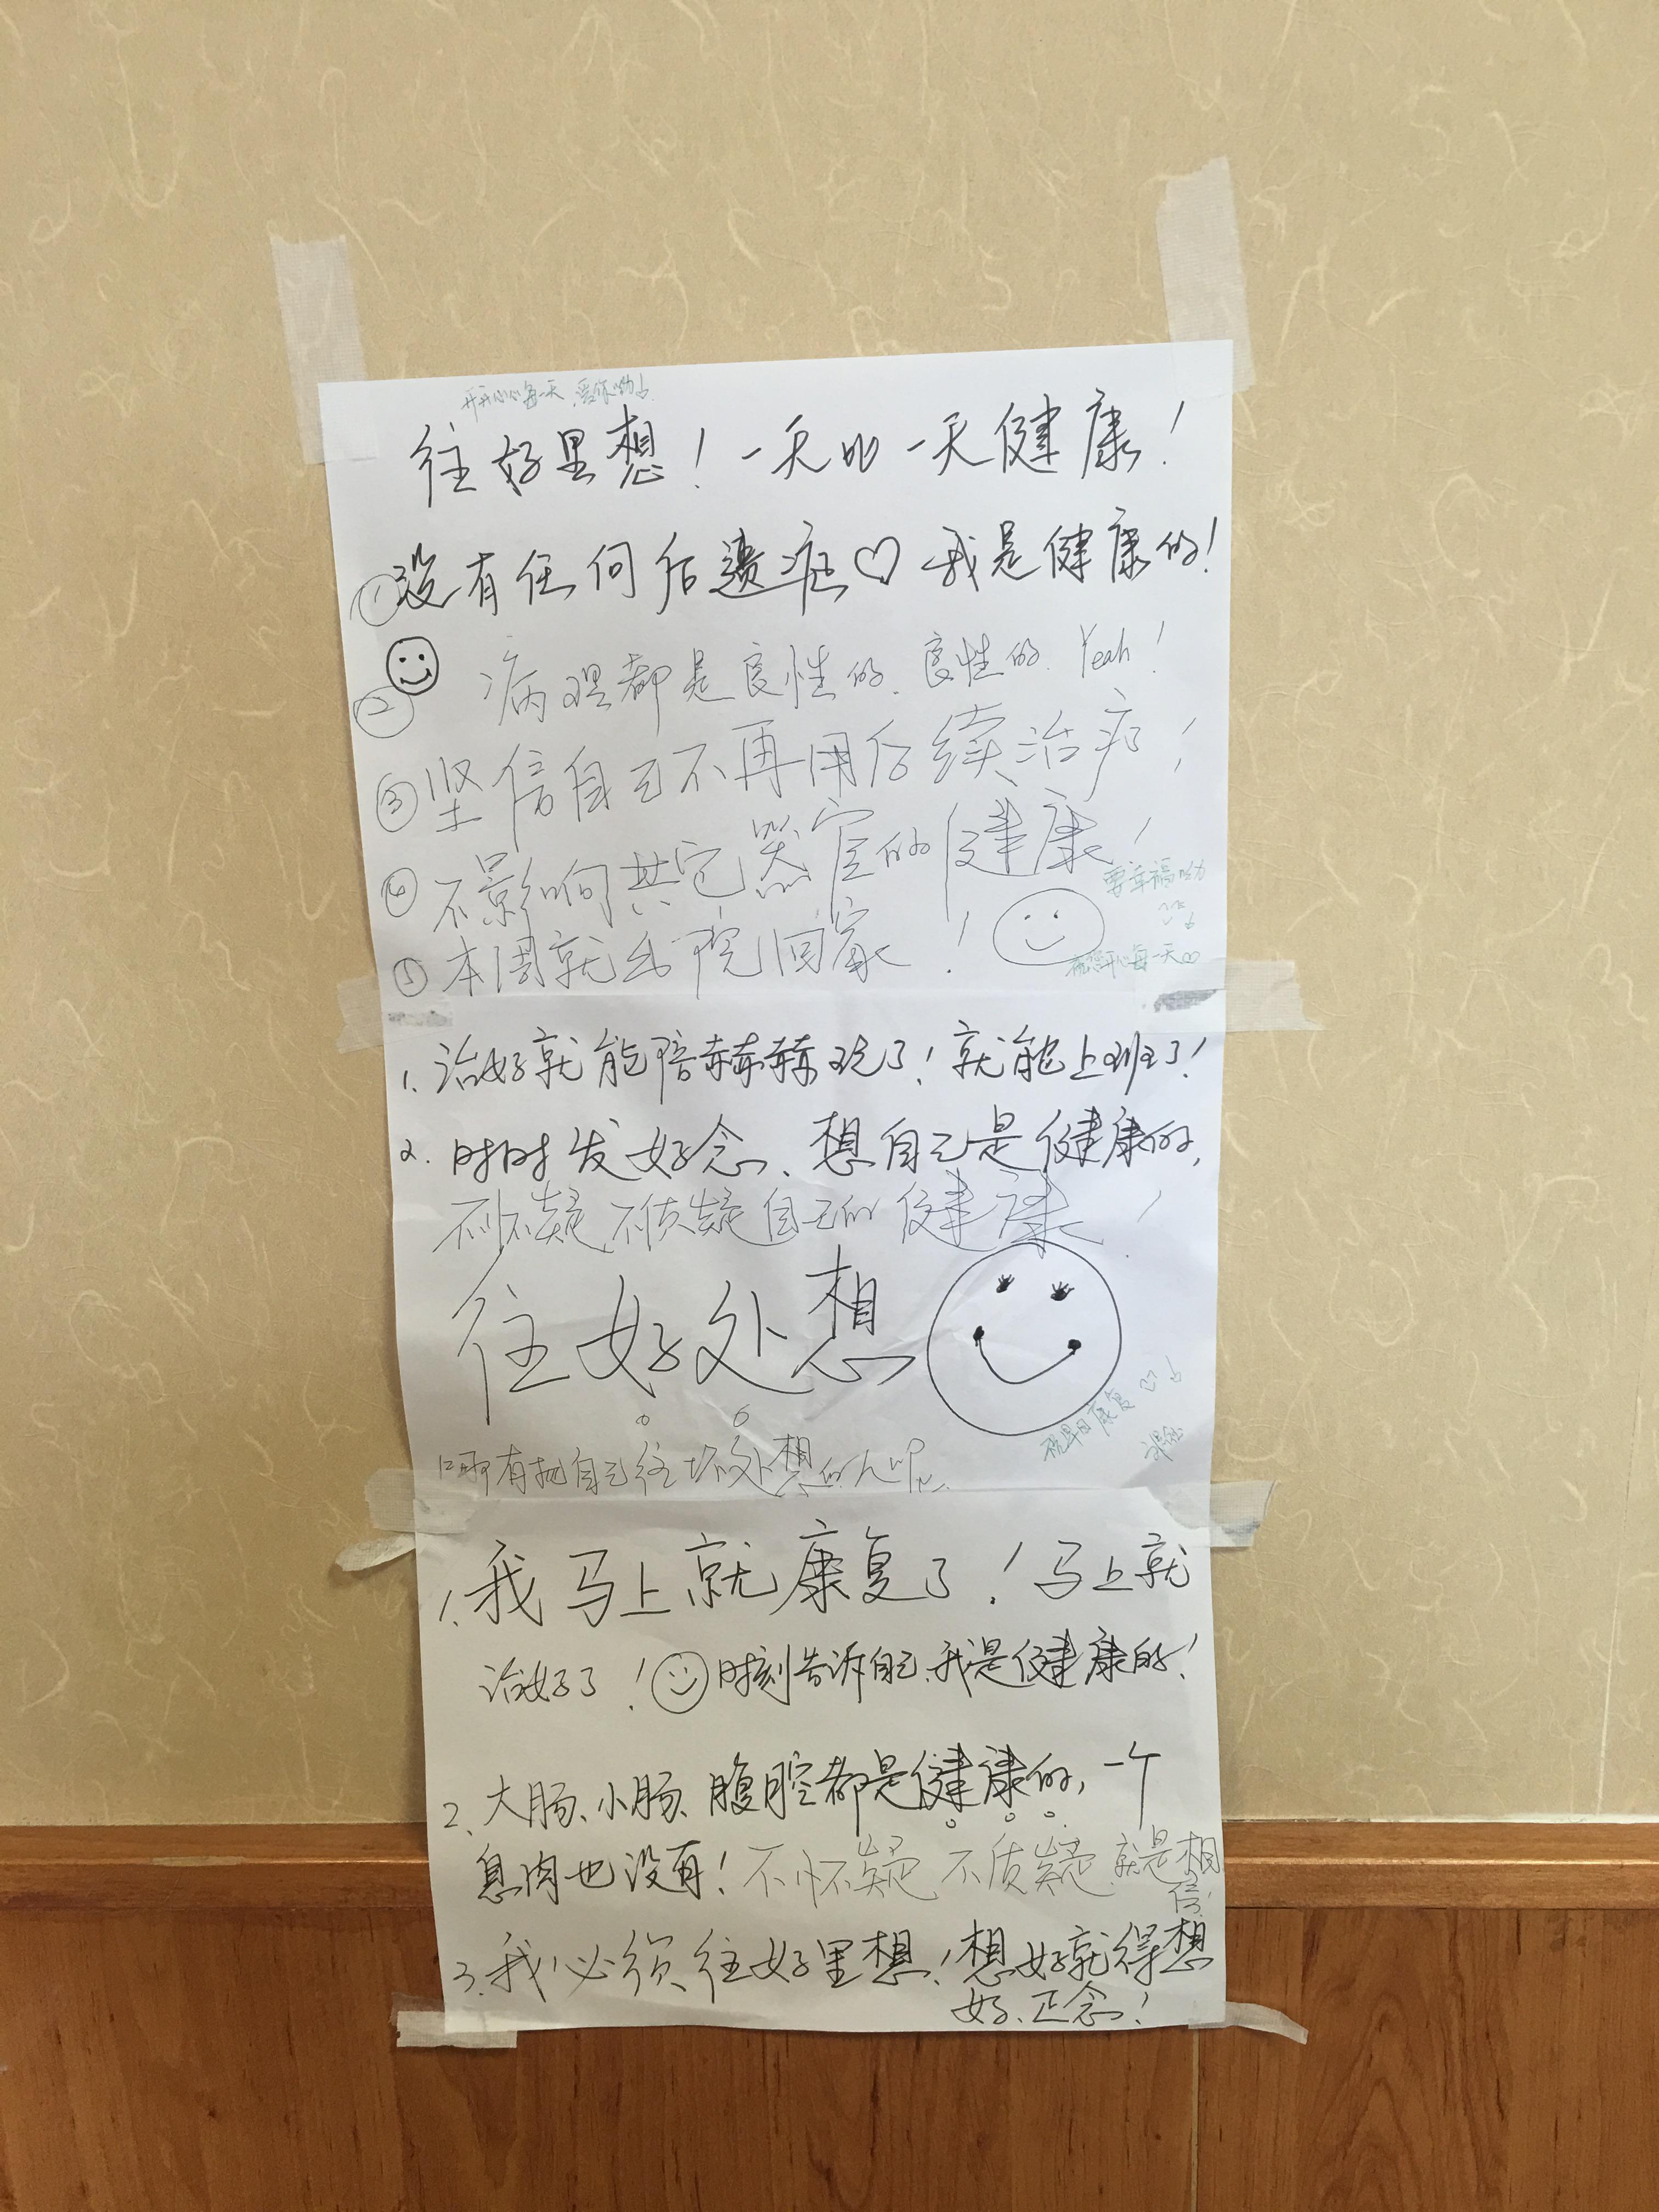 开开心心每一天,爱你哟
往好里想！一天比一天健康！
①没有任何后遗症♡我是健康的！
② 病理都是良性的、良性的、Yeah！
③坚信自己不再用后续治疗！
④不影响其它器官的健康！
要幸福哟
⑤本周就出院回家！
祝您开心每一天
1.治好就能陪赫赫玩了！就能上班了！
2.时时发好念、想自己是健康的,
不怀疑,不质疑自己的健康！
往好处想
祝早日康复♡
哪有把自己往坏处想的人呢
1.我马上就康复了！马上就
治好了！时刻告诉自己、我是健康的！
2、大肠、小肠、腹腔都是健康的,一个
息肉也没有！不怀疑 不质疑、就是相
信
3.我必须往好里想！想好就得想
好、正念！